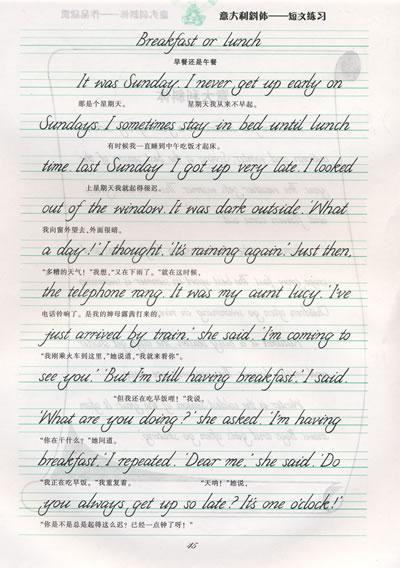 意大利斜体——短文练习
Breakfast or lunch
早餐还是午餐
It was Sunday. I never get up early on
那是个星期天。 星期天我从来不早起。
Sundays. I sometimes stay in bed until lunch
有时候我一直睡到中午吃饭才起床。
time. last Sunday I got up very late. I looked
上星期天我就起得很迟。
out of the window. It was dark outside. 'What
我向窗外望去,外面很暗。
a day!' I thought. 'It's raining again.' Just then,
"多糟的天气!"我想,"又在下雨了。"就在这时候,
the telephone rang. It was my aunt lucy. 'I've
电话铃响了。是我的婶母露茜打来的。
just arrived by train,' she said. 'I'm coming to
"我刚乘火车到这里,"她说道,"我就来看你"。
see you.' 'But I'm still having breakfast.' I said.
"但我还在吃早饭哩!"我说。
'What are you doing?' she asked. 'I'm having
"你在干什么?"她问道。
breakfast.' I repeated. 'Dear me,' she said. 'Do
"我正在吃早饭。"我重复着。 "天呐!"她说,
you always get up so late? It's one o'clock!'
"你是不是总是起得这么迟?已经一点钟了呀!"
45